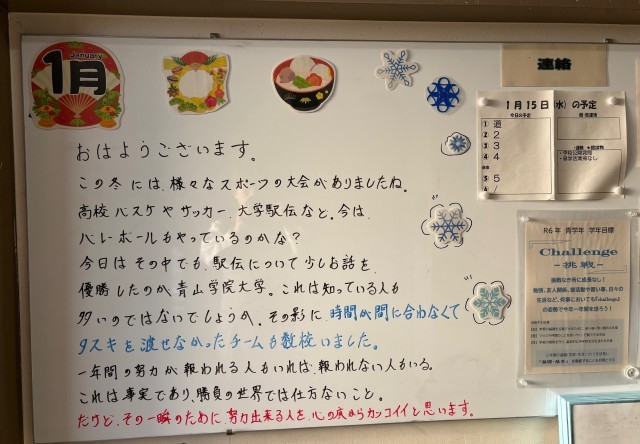 January
1月
おはようございます。
この冬には、様々なスポーツの大会がありましたね。
高校バスケやサッカー、大学駅伝など。今は、
バレーボールもやっているのかな？
今日はその中でも、駅伝について少しお話を。
優勝したのが青山学院大学。これは知っている人も
多いのではないでしょうか。その影に、時間が間に合わなくて
タスキを渡せなかったチームも数校いました。
一年間の努力が報われる人もいれば、報われない人もいる。
これは事実であり、勝負の世界では仕方ないこと。
だけど、その一瞬のために、努力出来る人を、心の底からカッコイイと思います。
連絡
1月15日(水)の予定
今日の予定
① 道
② 2
③ 3
④ 4
⑤ 5
R6年 青学年 学年目標
Challenge
-挑戦-